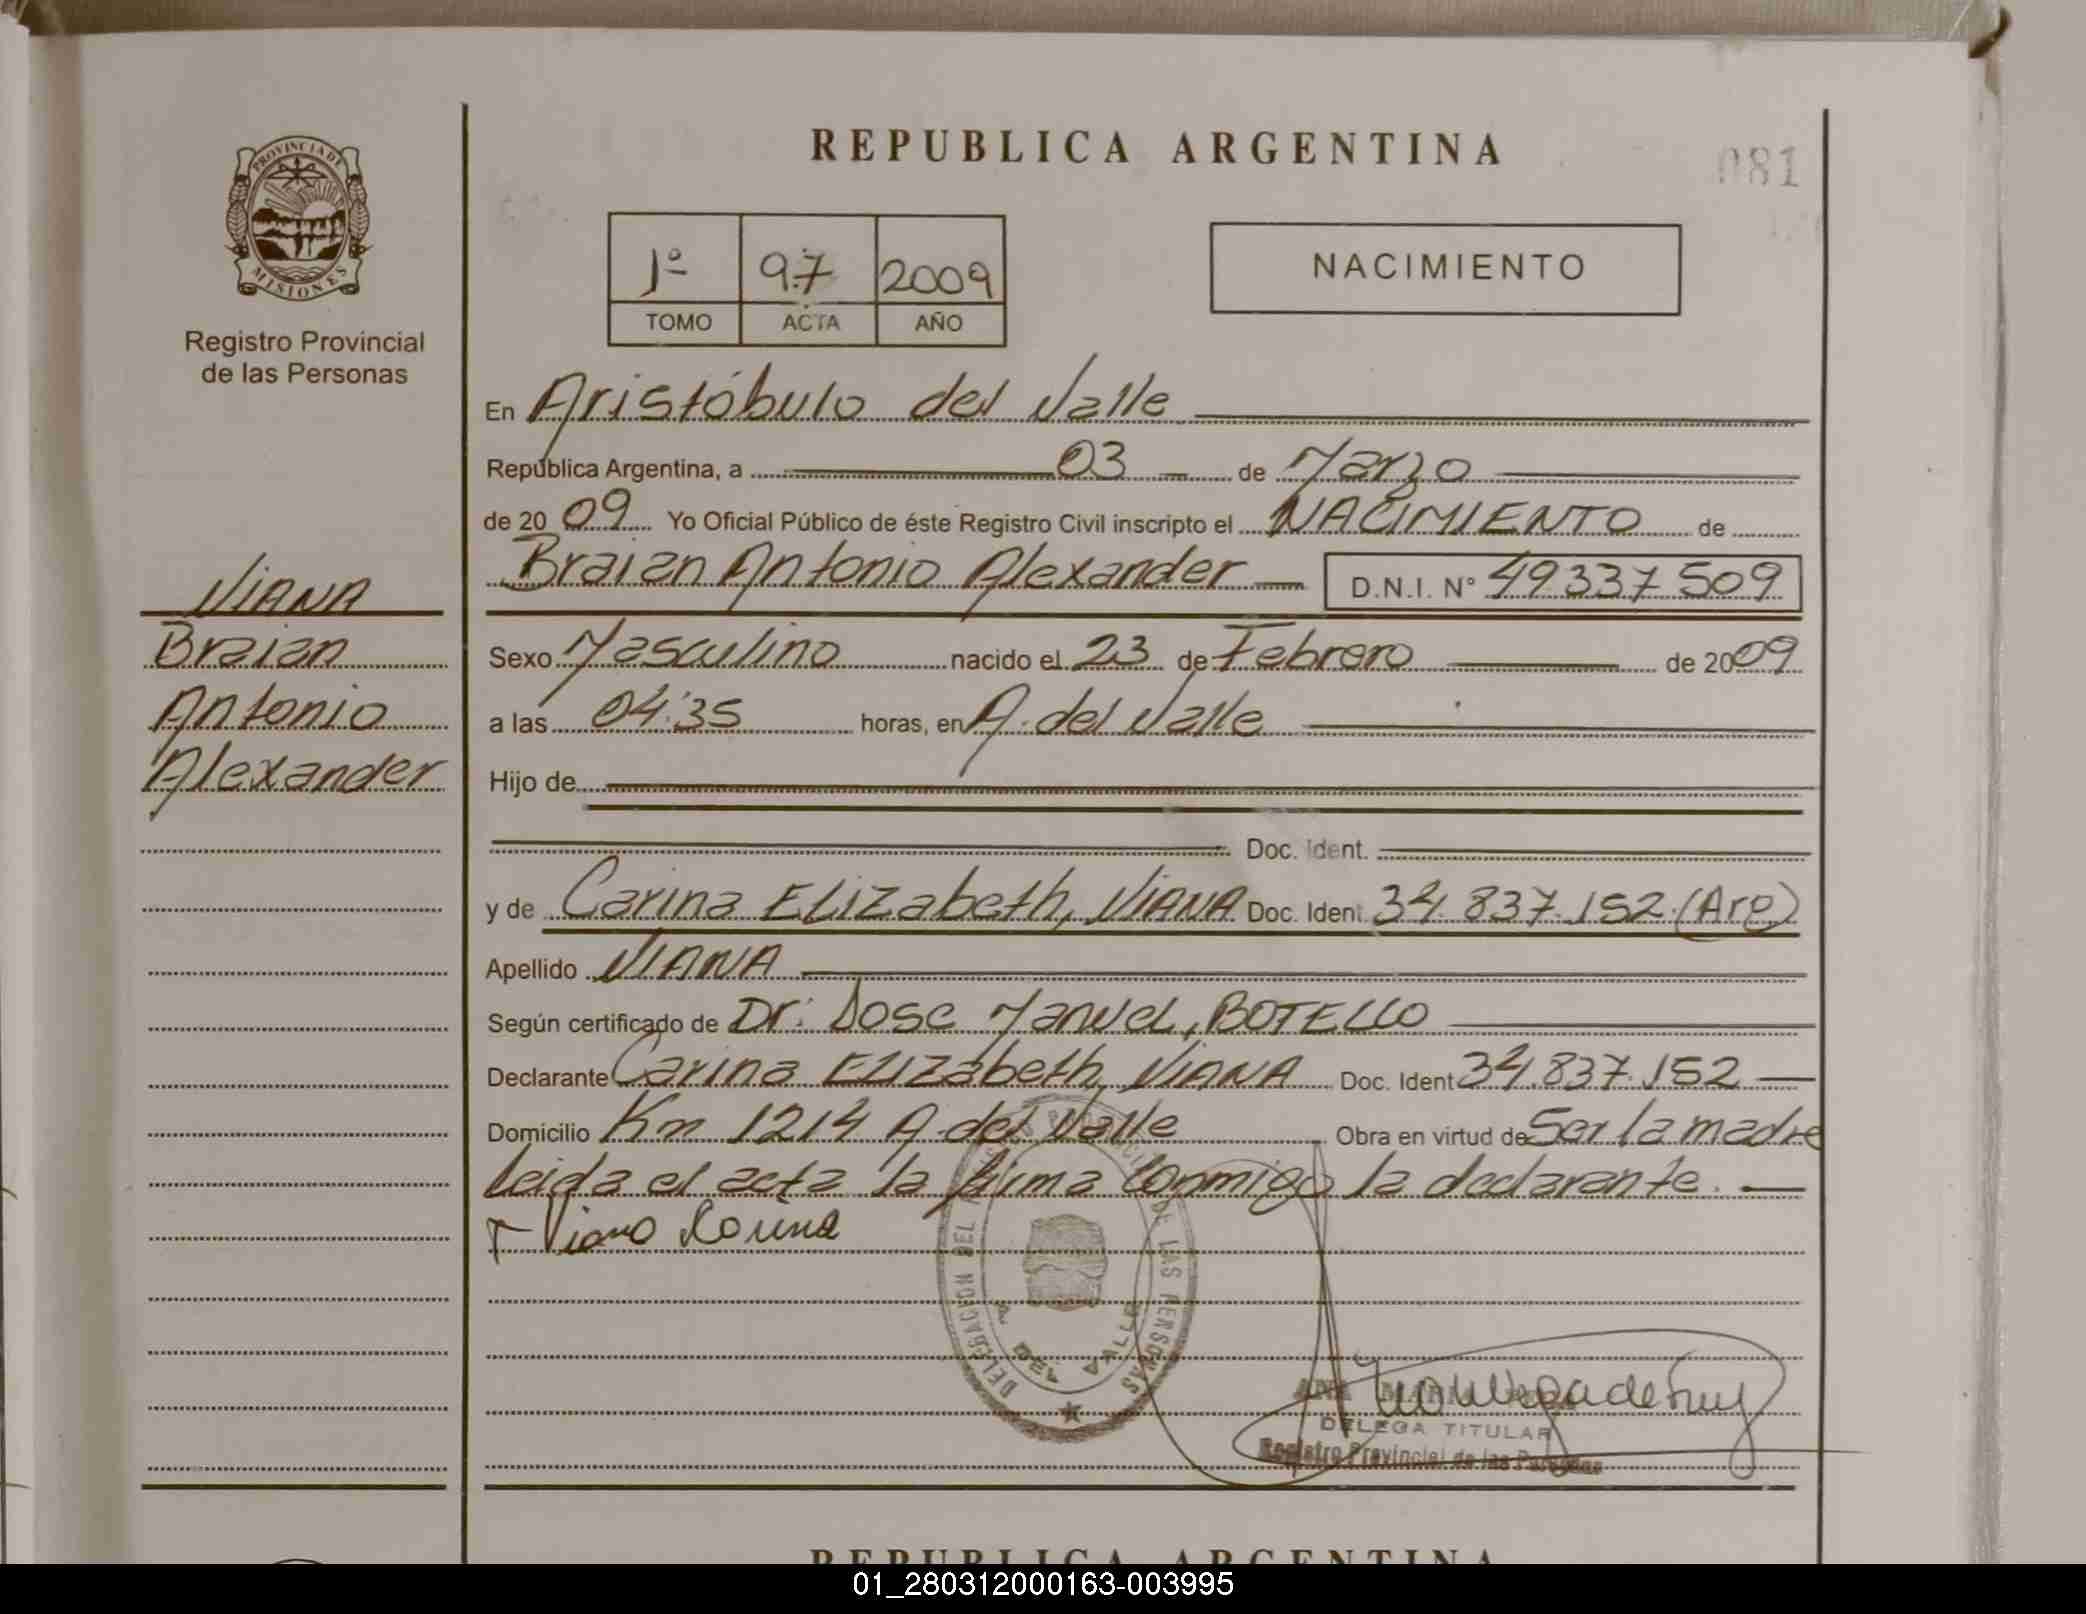 REPUBLICA ARGENTINA
081
PROVINCIA DE MISIONES
Registro Provincial
de las Personas
1º 97 2009
TOMO ACTA AÑO
NACIMIENTO
En Aristóbulo del Valle
República Argentina, a 03 de Marzo
de 2009 Yo Oficial Público de éste Registro Civil inscripto el NACIMIENTO de
Braian Antonio Alexander D.N.I. Nº 49337509
VIANA
Braian
Antonio
Alexander
Sexo Masculino nacido el 23 de Febrero de 2009
a las 04:35 horas, en A. del Valle
Hijo de
Doc. Ident.
y de Carina Elizabeth, VIANA Doc. Ident 34.837.152 (Arg)
Apellido VIANA
Según certificado de Dr: Jose Manuel, BOTELLO
Declarante Carina Elizabeth, VIANA Doc. Ident 34.837.152
Domicilio Km 1214 A. del Valle Obra en virtud de Ser la madre
Leida el acta la firma conmigo la declarante.
Viana Carina
DELEGACION DEL REGISTRO PROVINCIAL DE LAS PERSONAS
A. DEL VALLE
ANA MARIA
DELEGA TITULAR
Registro Provincial de las Personas
REPUBLICA ARGENTINA
01_280312000163-003995